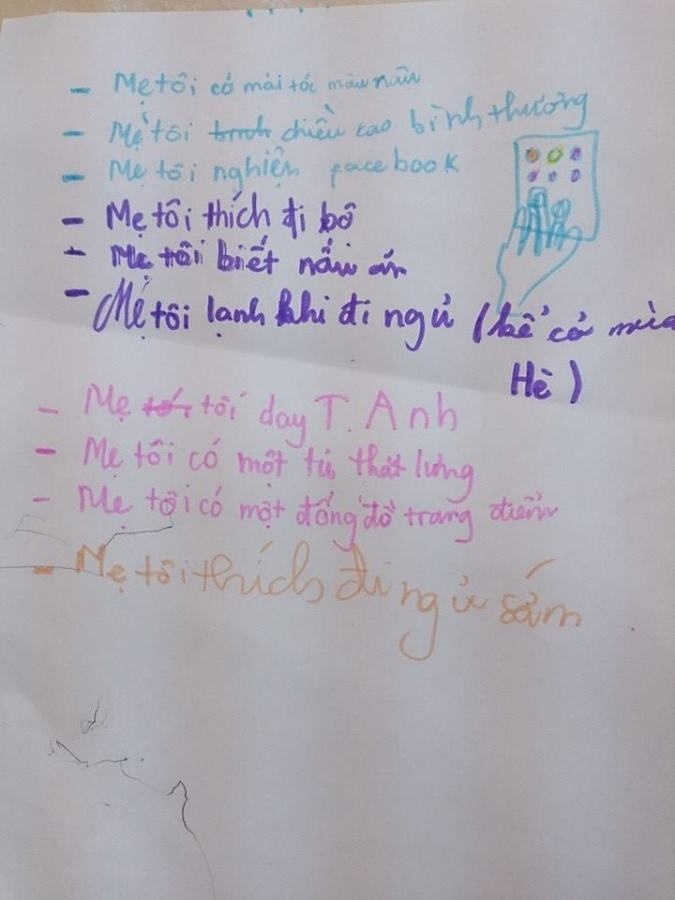 - Mẹ tôi có mái tóc màu nâu
- Mẹ tôi chiều cao bình thương
- Mẹ tôi nghiện facebook
- Mẹ tôi thích đi bô
- Mẹ tôi biết nấu ăn
- Mẹ tôi lạnh khi đi ngủ (kể cả mùa
Hè)
- Mẹ tôi day T. Anh
- Mẹ tôi có một tủ thắt lưng
- Mẹ tôi có một đống đồ trang điểm
- Mẹ tôi thích đi ngủ sớm